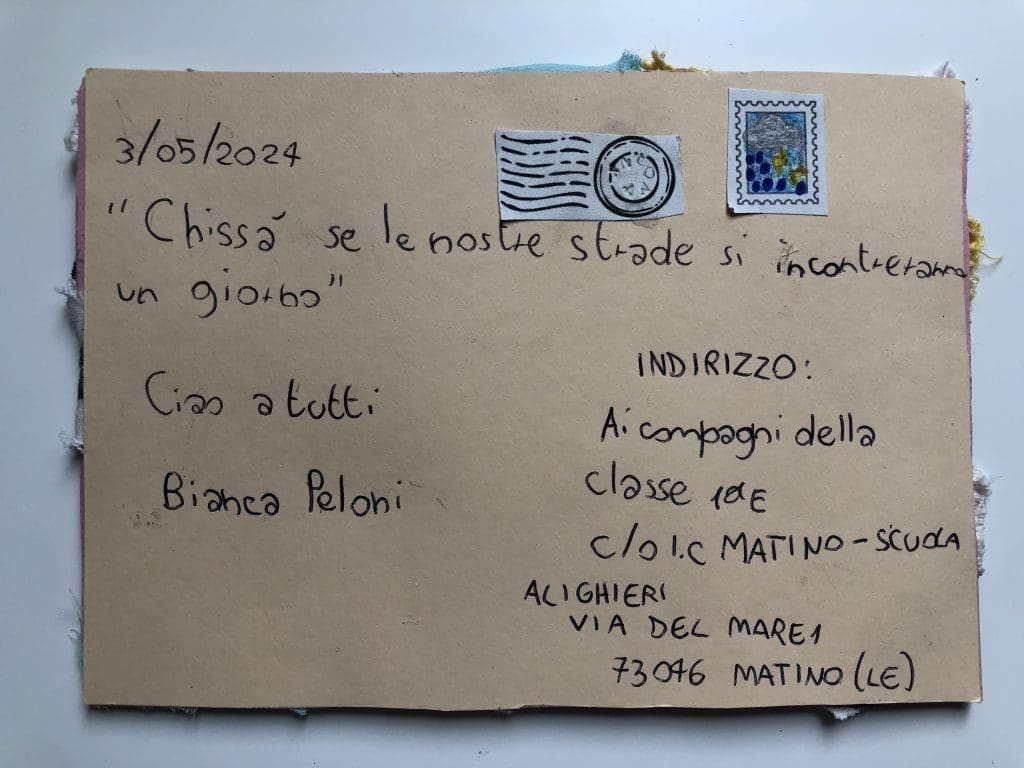 3/05/2024
"Chissá se le nostre strade si incontreranno
un giorno"
Ciao a tutti
Bianca Peloni
INDIRIZZO:
Ai compagni della
classe 1ªE
c/o I.C MATINO - SCUOLA
ALIGHIERI
VIA DEL MARE 1
73046 MATINO (LE)